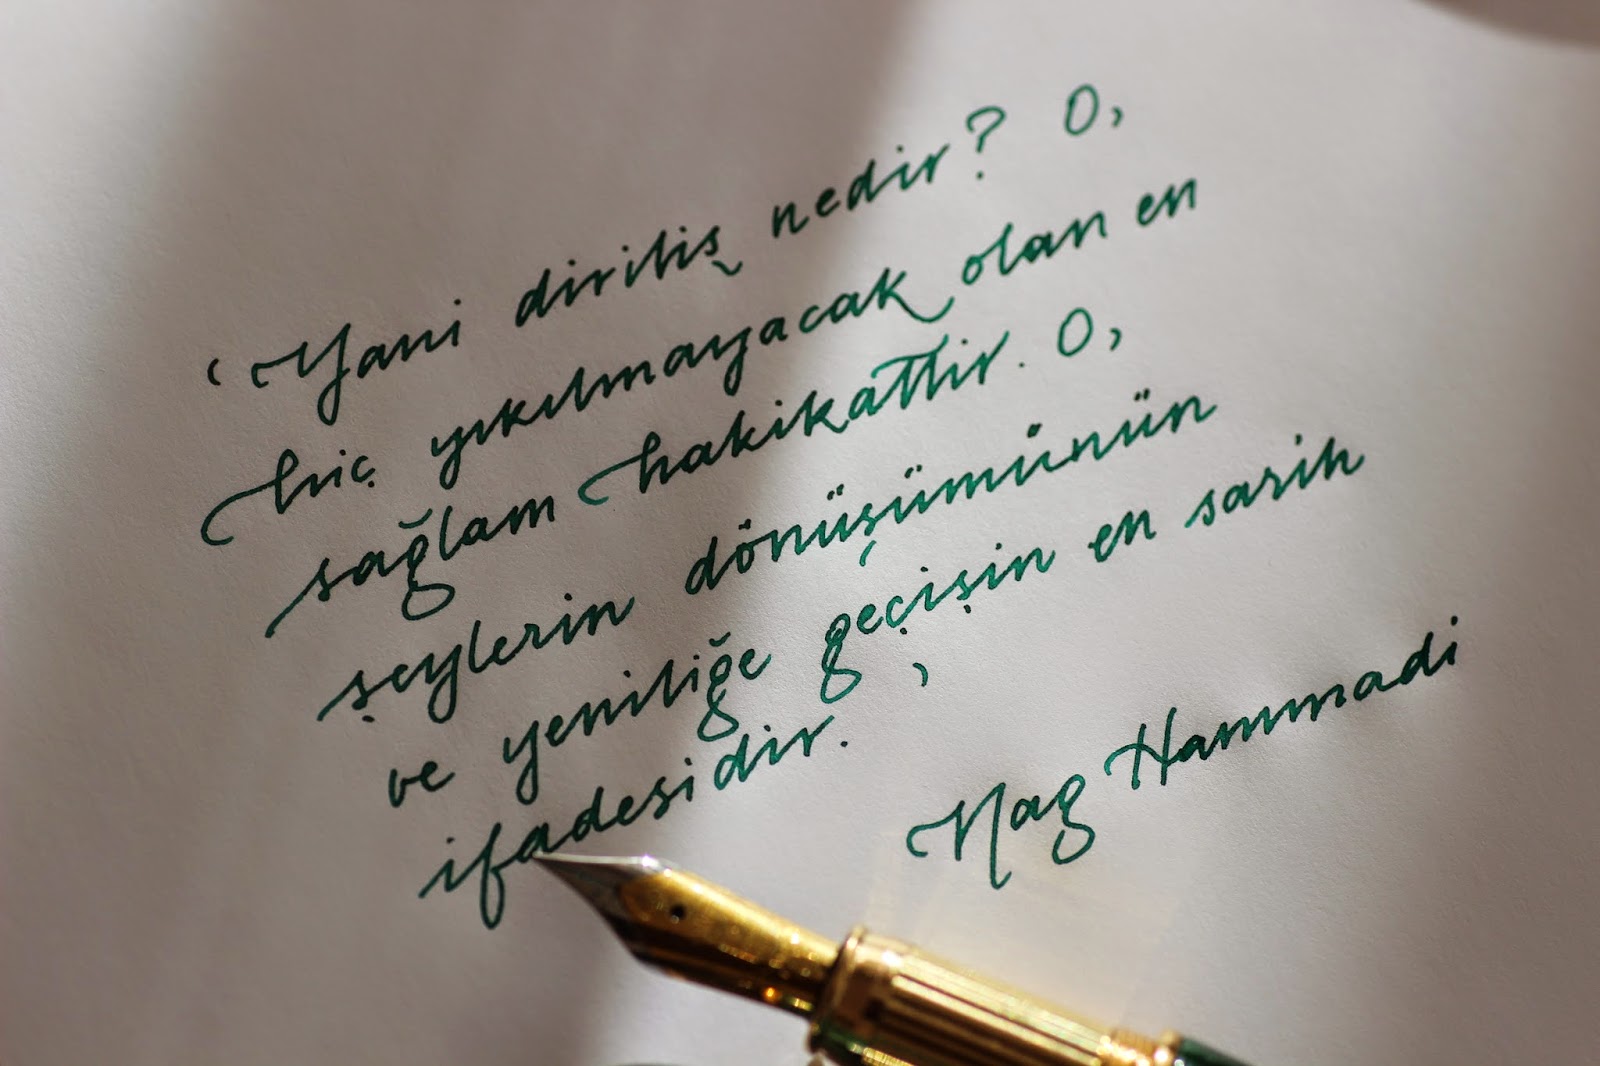 ‘Yani diriliş nedir? O,
hiç yıkılmayacak olan en
sağlam hakikattir. O,
şeylerin dönüşümünün
ve yeniliğe geçişin en sarih
ifadesidir.’
Nag Hammadi